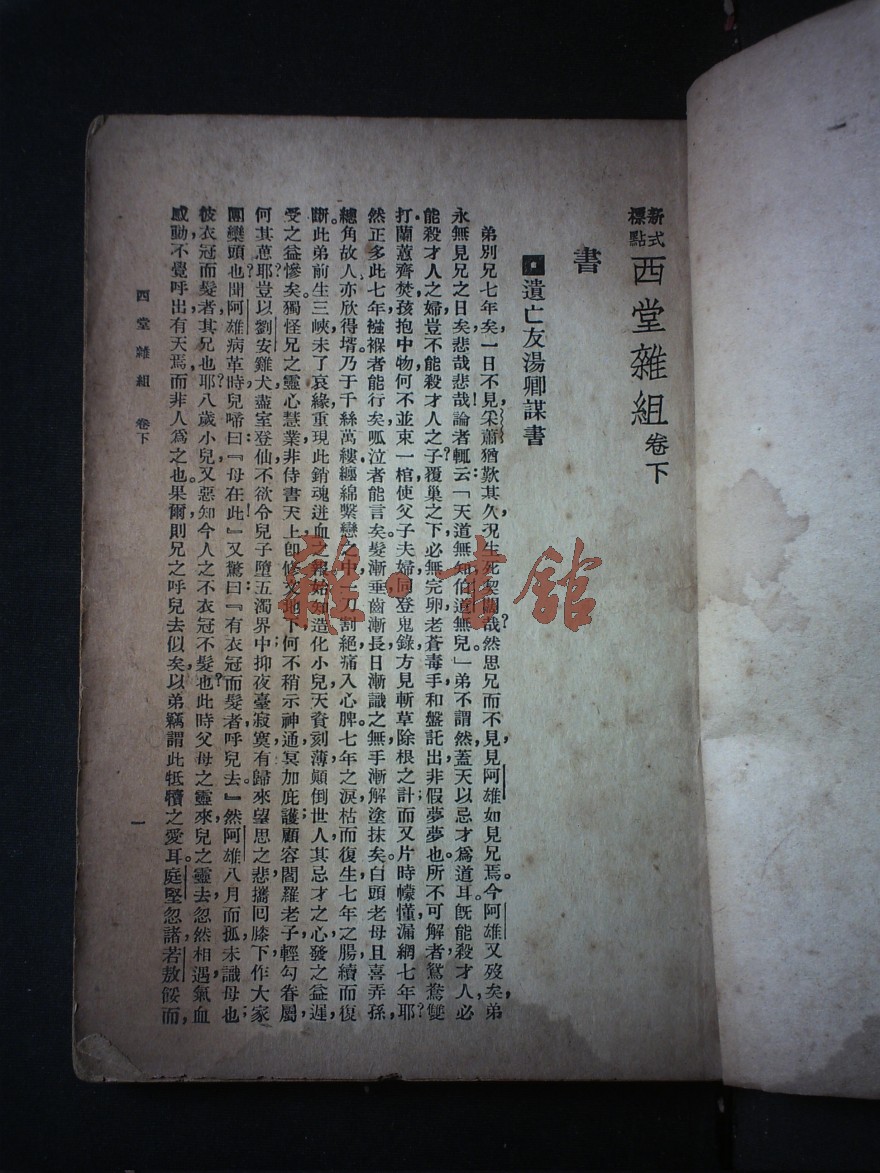 新式標點 西堂雜組 卷下
書
遺亡友湯卿謀書
弟別兄七年矣，一日不見，采蕭猶歎其久，況生死契闊哉？然思兄而不見，見阿雄如見兄焉。今阿雄又歿矣，弟
永無見兄之日矣，悲哉悲哉！論者輒云：「天道無知，伯道無兒。」弟不謂然，蓋天以忌才爲道耳。旣能殺才人，必
能殺才人之婦，豈不能殺才人之子？覆巢之下，必無完卵，老蒼毒手，和盤託出，非假夢夢也。所不可解者，鴛鴦雙
打，蘭蕙齊焚，孩抱中物，何不並束一棺，使父子夫婦，同登鬼錄，方見斬草除根之計，而又片時懞懂，漏網七年耶？
然正多此七年，襁褓者能行矣，呱泣者能言矣。髮漸垂，齒漸長，日漸識之無，手漸解塗抹矣。白頭老母，且喜弄孫，
總角故人，亦欣得壻。乃于千絲萬縷，纏綿繫戀之中，一刀割絕，痛入心脾。七年之淚，枯而復生，七年之腸，續而復
斷。此弟前生三峽，未了哀緣，重現此銷魂迸血之報，始知造化小兒，天資刻薄，顚倒世人，其忌才之心，發之益遲，
受之益慘矣。獨怪兄之靈心慧業，非侍書天上，卽修文地下，何不稍示神通，冥加庇護；顧容閻羅老子，輕勾眷屬，
何其悤耶？豈以劉安雞犬，盡室登仙，不欲令兒子墮五濁界中；抑夜臺寂寞，有歸來望思之悲，攜囘膝下，作大家
團欒頭也？聞阿雄病革時，兒啼曰：『母在此！』又驚曰：『有衣冠而髮者，呼兒去。』然阿雄八月而孤，未識母也；
彼衣冠而髮者，其兄也耶？八歲小兒，又惡知今人之不衣冠不髮也？此時父母之靈來，兒之靈去，忽然相遇，氣血
感動，不覺呼出，有天焉，而非人爲之也。果爾，則兄之呼兒去似矣，以弟竊謂此牴犢之愛耳。庭堅忽諸，若敖餒而，
西堂雜組 卷下
一
雜·書館